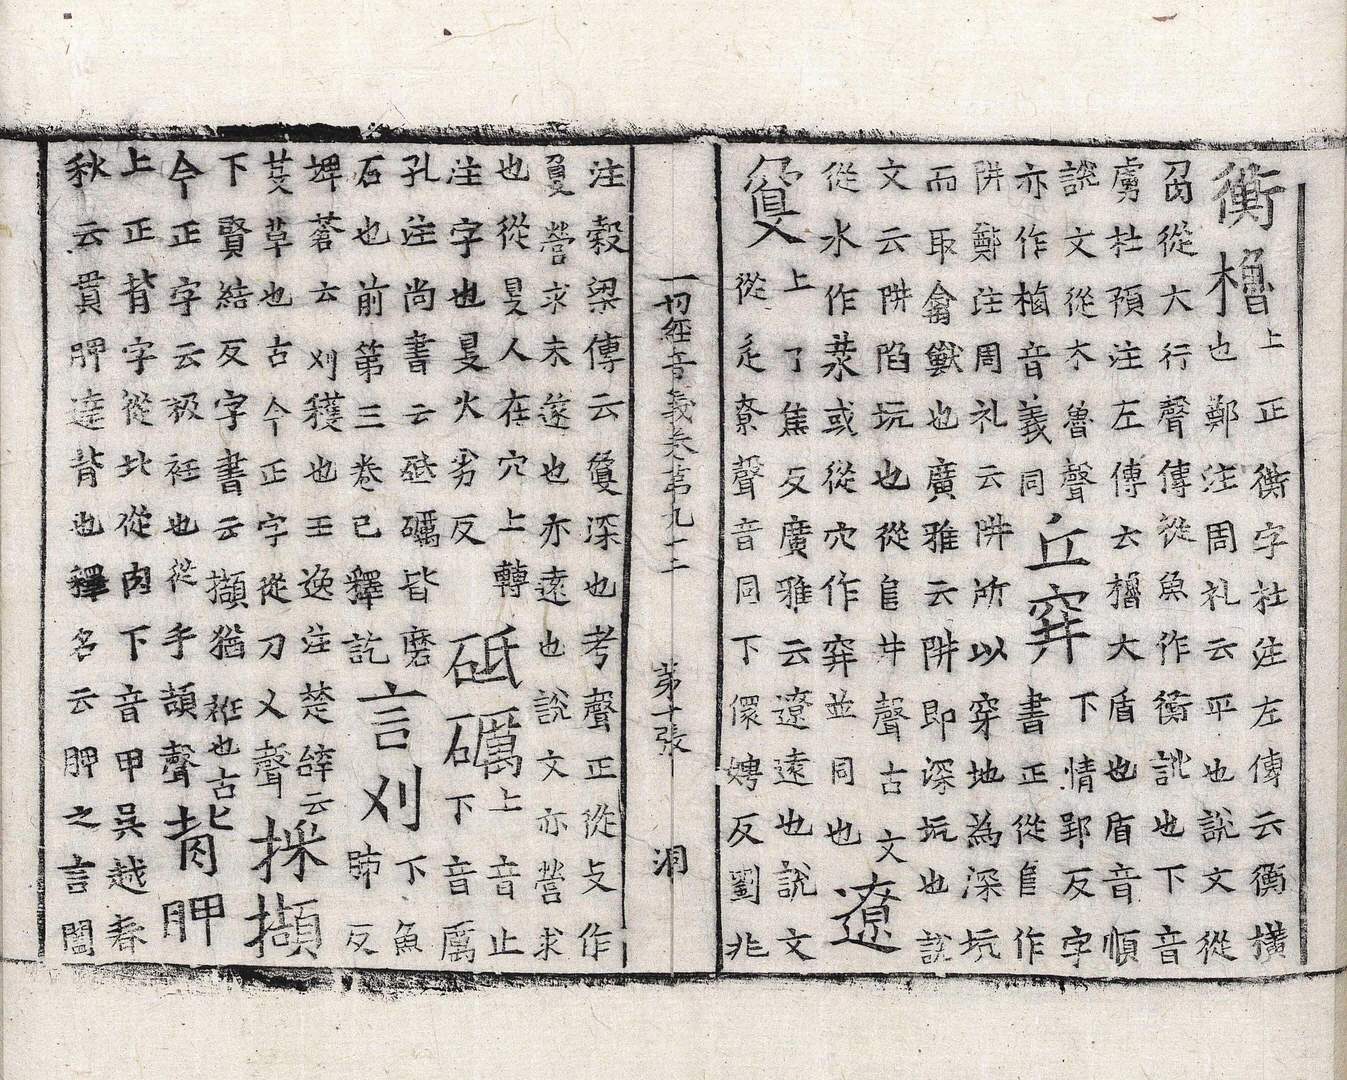 衡櫓
上正衡字杜注左傳云衡橫
也鄭注周礼云平也説文從
從大行聲傳從魚作衡訛也下音
虜杜預注左傳云櫓大盾也盾音順
說文從木魯聲
亦作樐音義同
丘穽
下情郢反字
書正從𨸏作
阱鄭注周礼云阱所以穿地為深坑
而取禽獸也廣雅云阱即深坑也説
文云阱陷坑也從𨸏井聲古文
從水作汬或從穴作穽並同也
遼
敻
上了焦反廣雅云遼遠也説文
從辵尞聲音同下儇娉反劉兆
一切經音義卷第九十二 第十張 洞
注穀梁傳云敻深也考聲正從攴作
敻營求未遂也亦遠也説文亦營求
也從𡕥人在穴上轉
注字也𡕥火劣反
砥礪
上音止
下音厲
孔注尚書云砥礪皆磨
石也前第三卷已釋訖
言刈
下魚
肺反
埤蒼云刈穫也王逸注楚辝云
芟草也古今正字從刀乂聲
採擷
下賢結反字書云擷猶袵也古
今正字云衱衽也從手頡聲
背胛
上正背字從北從肉下音甲吳越春
秋云貫胛達背也釋名云胛之言闔